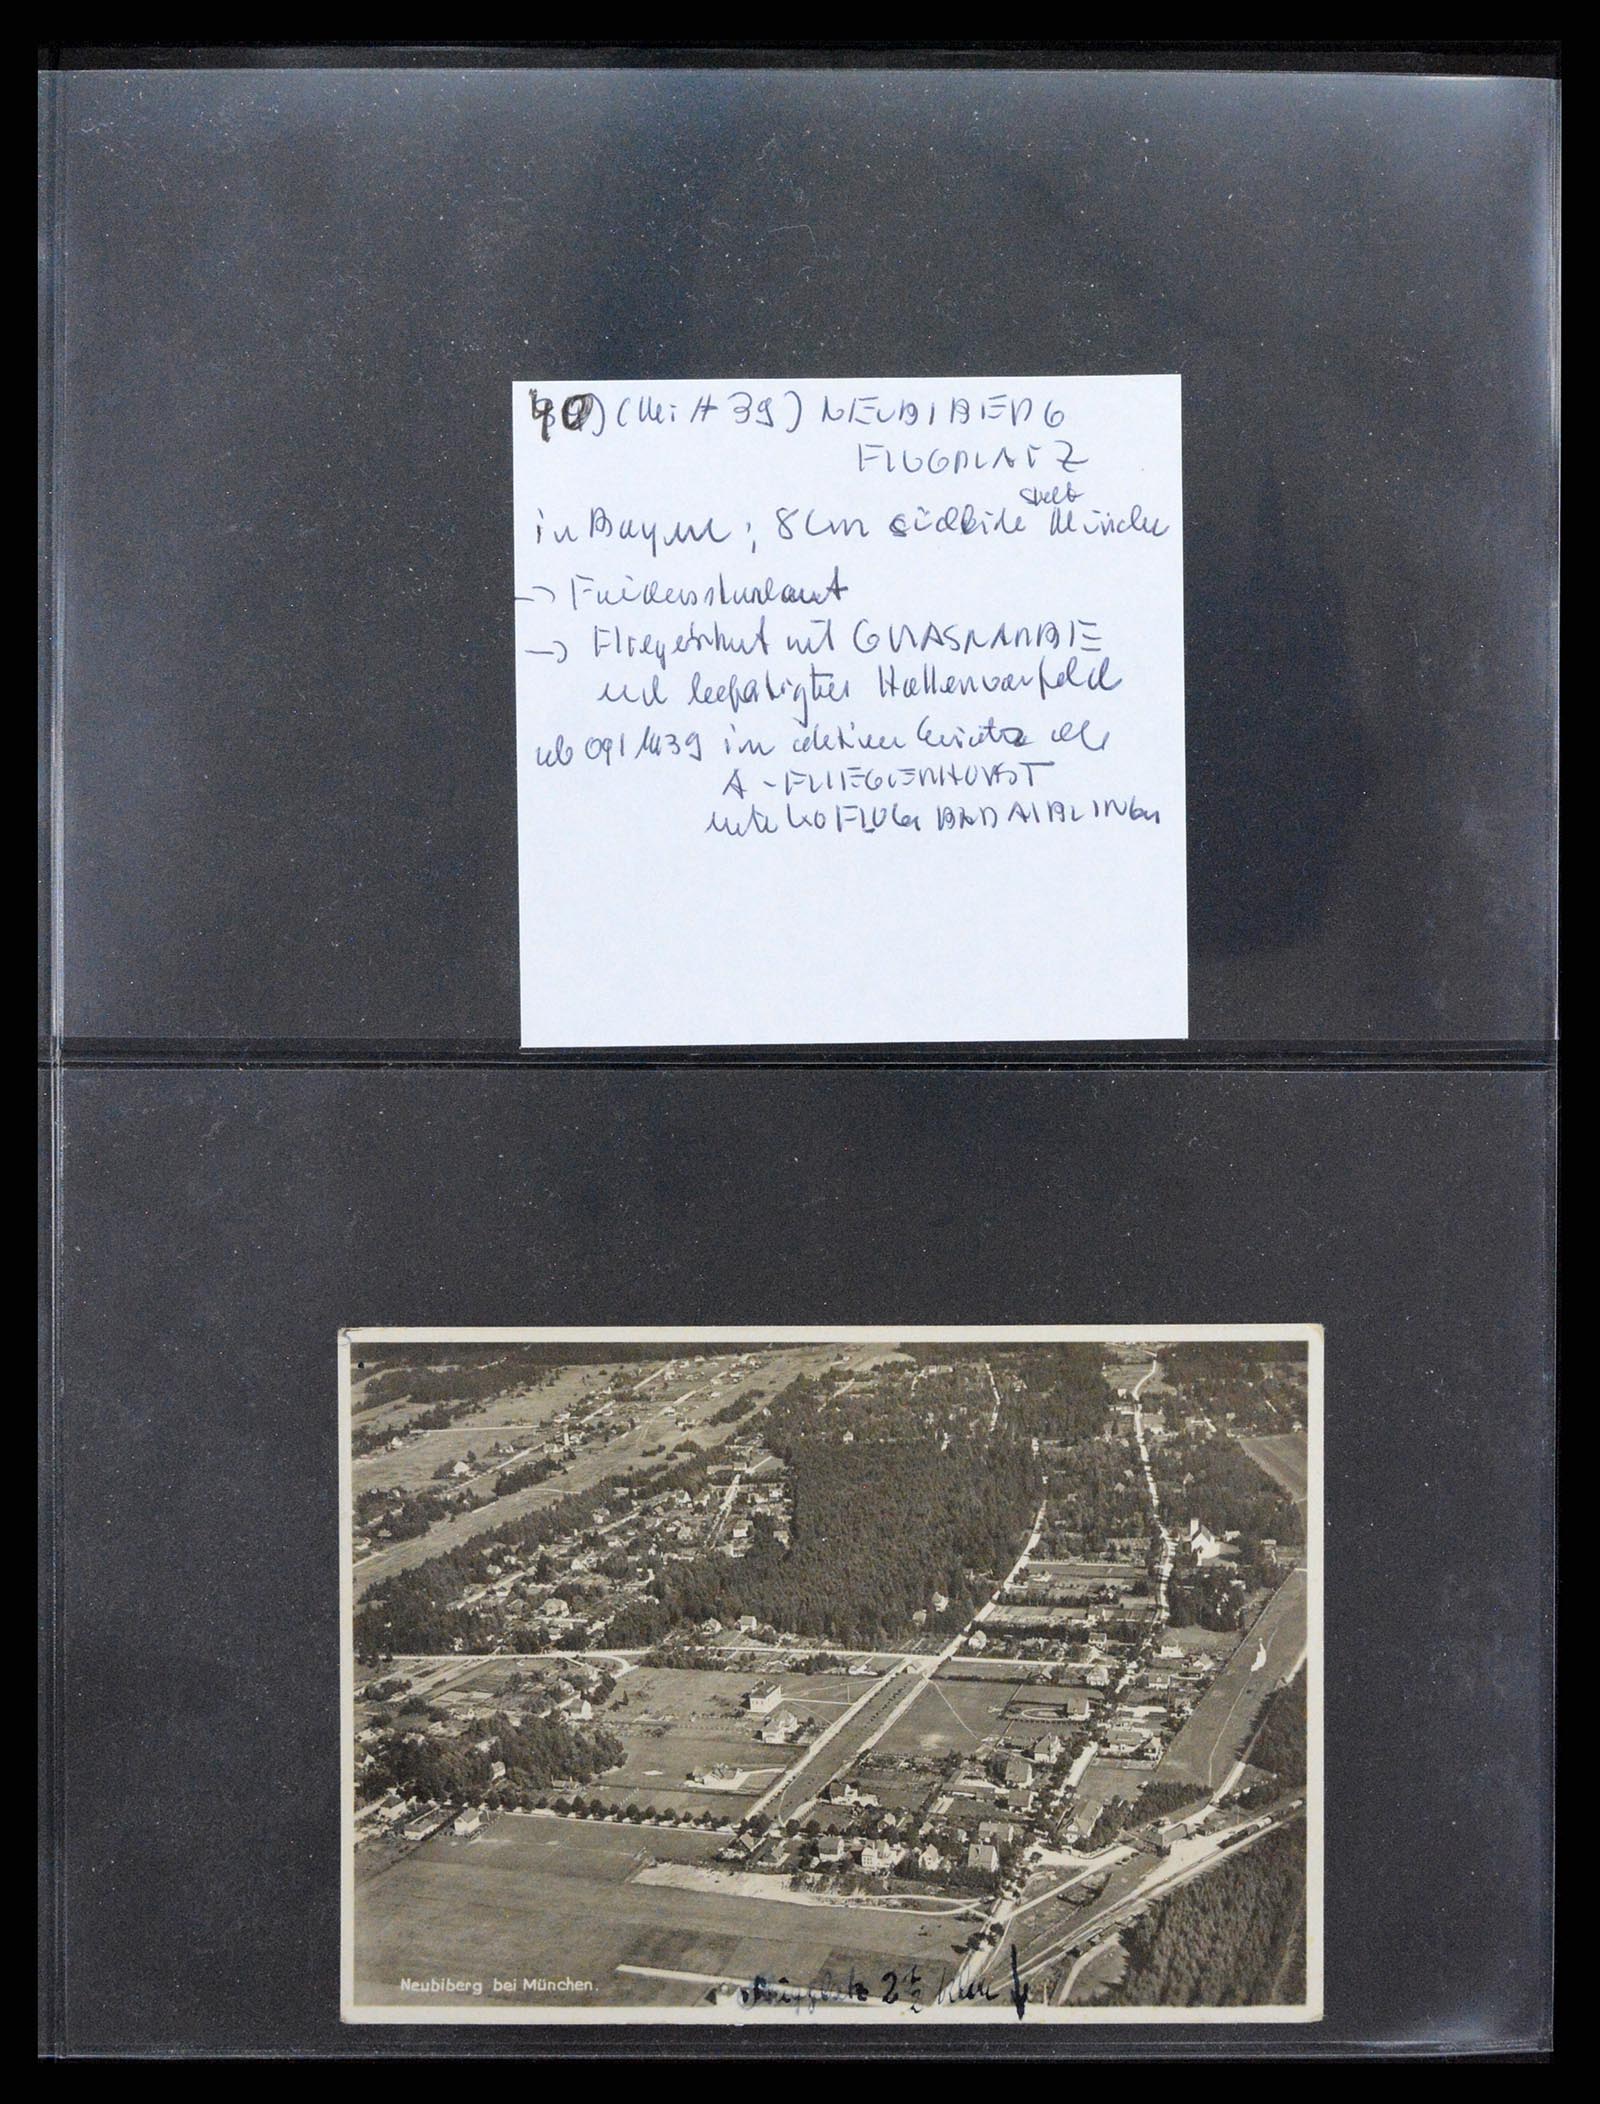 40) (Mit # 39) NEUBIBERG
FLUGPLATZ
in Bayern; 8 km südlich Stadt München
→ Friedensstandort
→ Fliegerhorst mit GRASNARBE
und befestigtes Hallenvorfeld
ab 09/1939 im aktiven Einsatz als
A-FLIEGERHORST
unter KOFLUG BAD AIBLING
Neubiberg bei München.
Flugplatz 2 1/2 km ↓